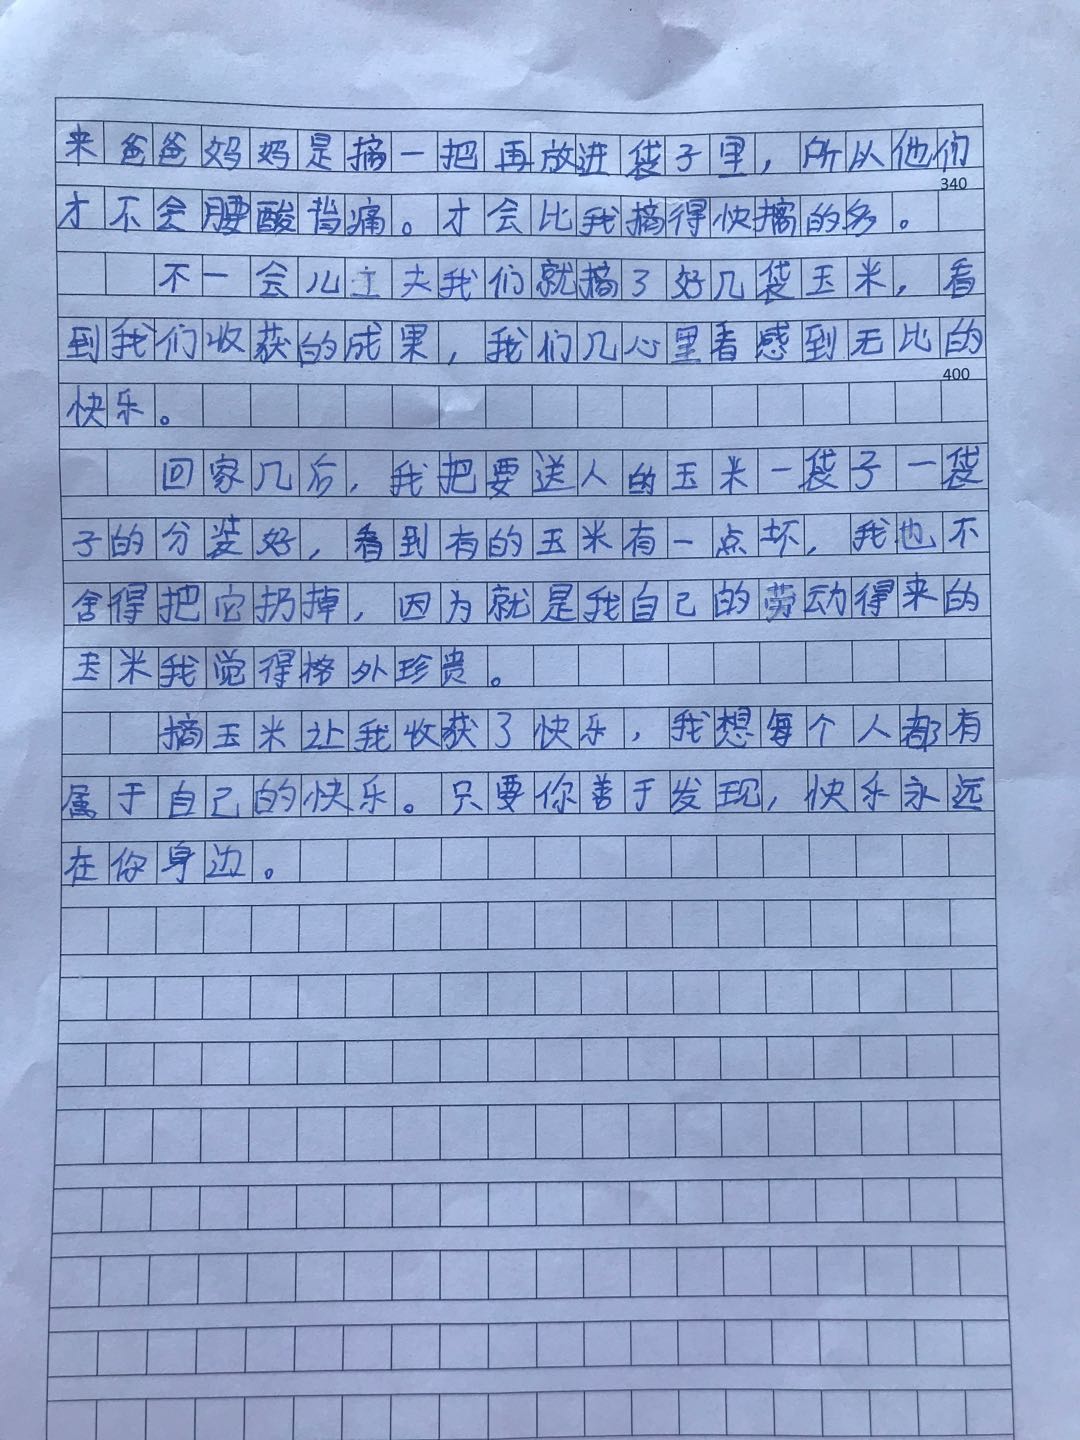 来爸爸妈妈是摘一把再放进袋子里，所从他们
340
才不会腰酸背痛。才会比我摘得快摘的多。
不一会儿功夫我们就摘了好几袋玉米，看
到我们收获的成果，我们几心里看感到无比的
400
快乐。
回家几后，我把要送人的玉米一袋子一袋
子的分装好，看到有的玉米有一点坏，我也不
舍得把它扔掉，因为就是我自己的劳动得来的
玉米我觉得格外珍贵。
摘玉米让我收获了快乐，我想每个人都有
属于自己的快乐。只要你善于发现，快乐永远
在你身边。